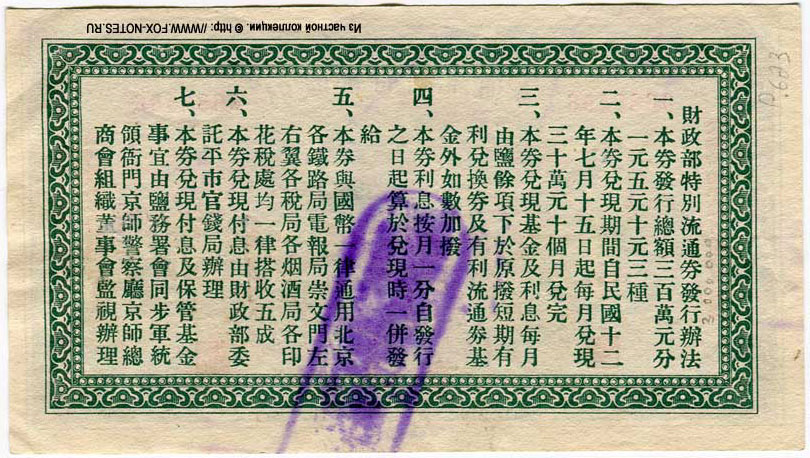 財政部特別流通券發行辦法
一、本券發行總額三百萬元分
一元五元十元三種
二、本券兌現期間自民國十二
年七月十五日起每月兌現
三十萬元十個月兌完
三、本券兌現基金及利息每月
由鹽餘項下於原撥短期有
利兌換券及有利流通券基
金外如數加撥
四、本券利息按月一分自發行
之日起算於兌現時一併發
給
五、本券與國幣一律通用北京
各鐵路局電報局崇文門左
右翼各稅局各烟酒局各印
花稅處均一律搭收五成
六、本券兌現付息由財政部委
託平市官錢局辦理
七、本券兌現付息及保管基金
事宜由鹽務署會同步軍統
領衙門京師警察廳京師總
商會組織董事會監視辦理
Из частной коллекции. © http: //WWW.FOX-NOTES.RU
3 000 000
p.623